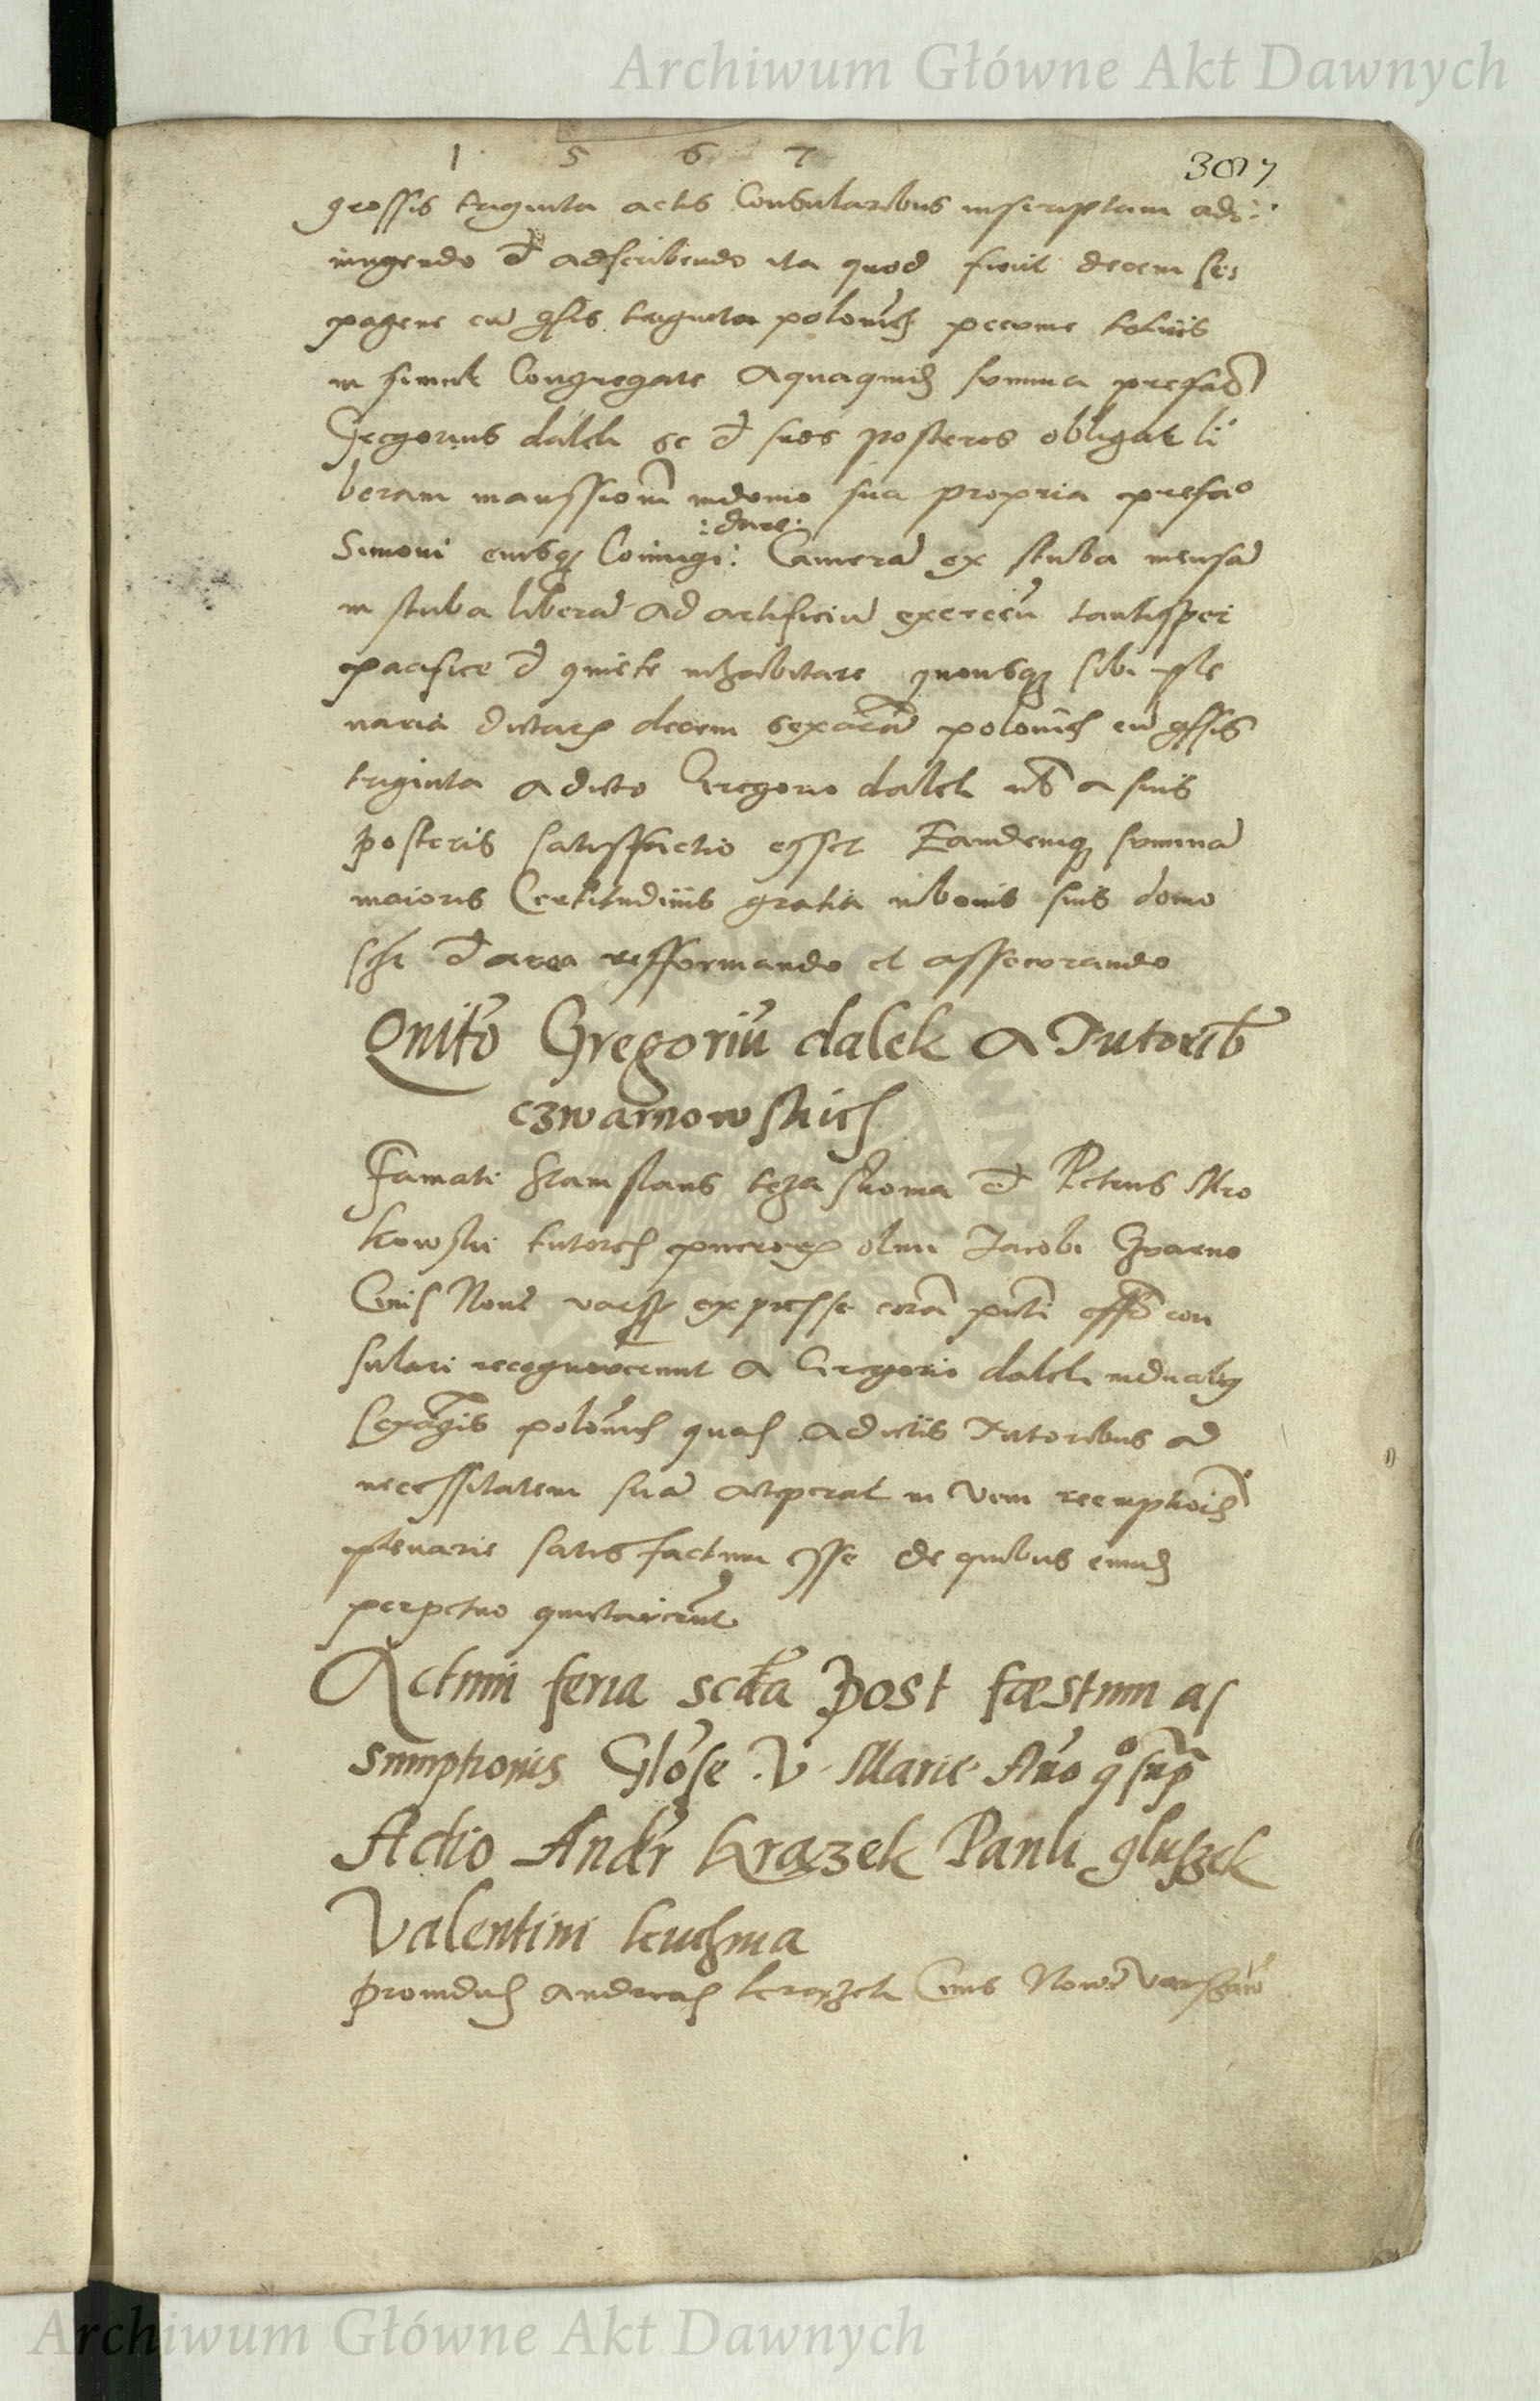 Archiwum Główne Akt Dawnych
1 5 6 7
307
grossis triginta actis Consularibus inscriptam adi
ungendo et adscribendo ita quod sunt decem sex
pagene cu gssis triginta polonich pecunie totius
in simul Congregate Aquaquid summa prefat
Gregorius dalek se et suos posteros obligat li
beram manssionem in domo sua propria prefato
:dare:
Simoni eiusq Coniugi: Camera ex stuba mensa
in stuba libera ad artificiu exercen tantisper
pacifice et quiete inhabitare quousq sibi ple
naria dictar decem sexagena polonich cu gssis
triginta a dicto Gregorio dalek a suis
posteris satisfactio esset Eandemq summa
maioris Certitudinis gratia in bonis suis domo
et area refformando et assecorando
Quito Gregoriu dalek a Tutorib
czwarnowskich
Famati Stanislaus koza et Petrus Mro
kowski tutores pueror olim Jacobi Zvarno
Civis Nove expresse cora pnti offo con
sulari recognoverunt a Gregorio dalek in duabus
sexagis polonich quas a dictis Tutoribus ad
necessitatem sua acceperat in vim
plenarie satisfactum esse de quibus eund
perpetuo quictaverunt
Actum feria scda post fæstum as
sumptionis Glose V Marie Ano quo sup
Actio Andr Krązek Pauli gluszek
Valentini kuchma
providus Andreas krązek Civis Nove varszaw
Archiwum Główne Akt Dawnych